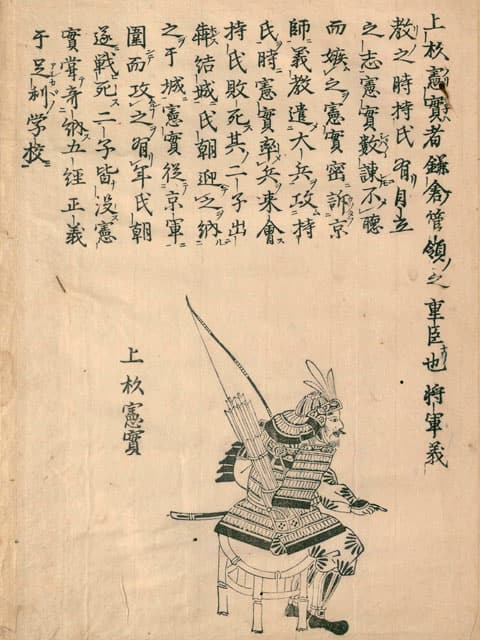 上杦憲實者鎌倉管領之重臣也將軍義
教之時持氏有自立
之志憲實數諫不聽
而嫉之憲實密訴京
師義教遣大兵攻持
氏時憲實率兵来會
持氏敗死其二子出
犇結城氏朝迎之納
之于城憲實從京軍
圍而攻之有年氏朝
遂戰死二子皆没憲
實甞寄納五經正義
于足利學校
上杦憲實